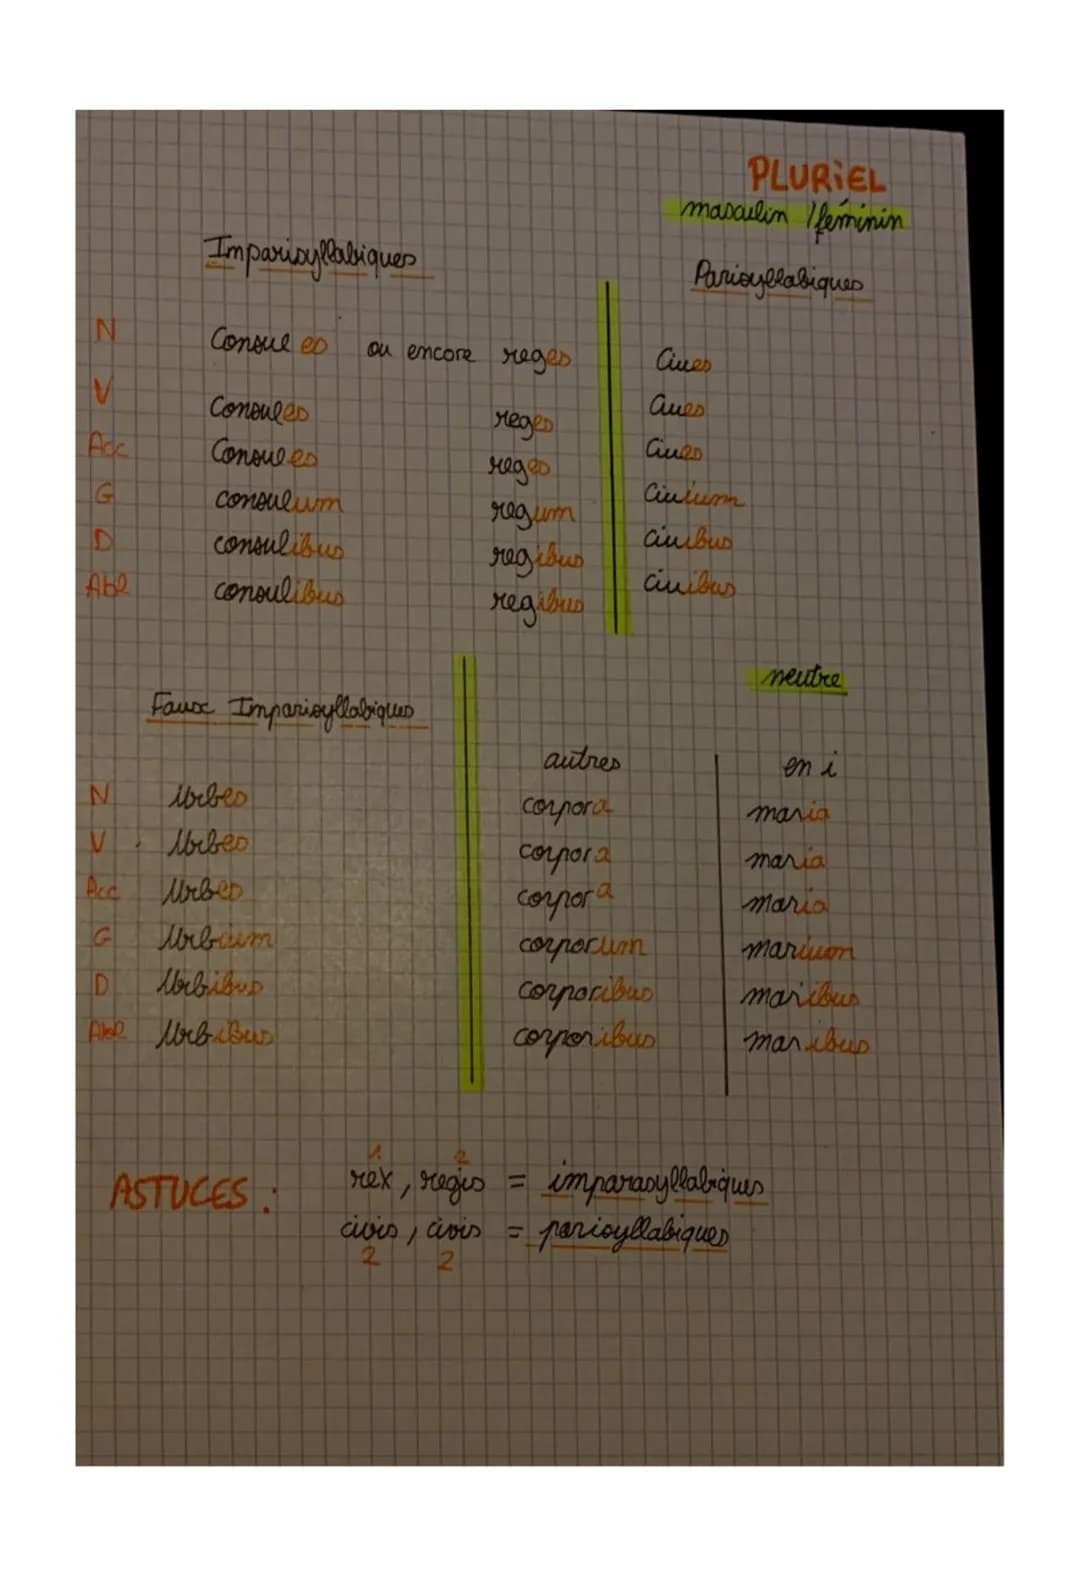 PLURIEL
masculin / féminin
Imparisyllabiques
Parisyllabiques
N Consules ou encore reges Ciues
V Consules reges Ciues
Acc Consules reges Ciues
G consulum regum Ciuium
D consulibus regibus ciuibus
Abl consulibus regibus ciuibus
neutre
Faux Imparisyllabiques
autres en i
N Urbes corpora maria
V Urbes corpora maria
Acc Urbes corpora maria
G Urbium corporum marium
D Urbibus corporibus maribus
Abl Urbibus corporibus maribus
1 2
ASTUCES : rex, regis = imparasyllabiques
civis, civis = parisyllabiques
2 2